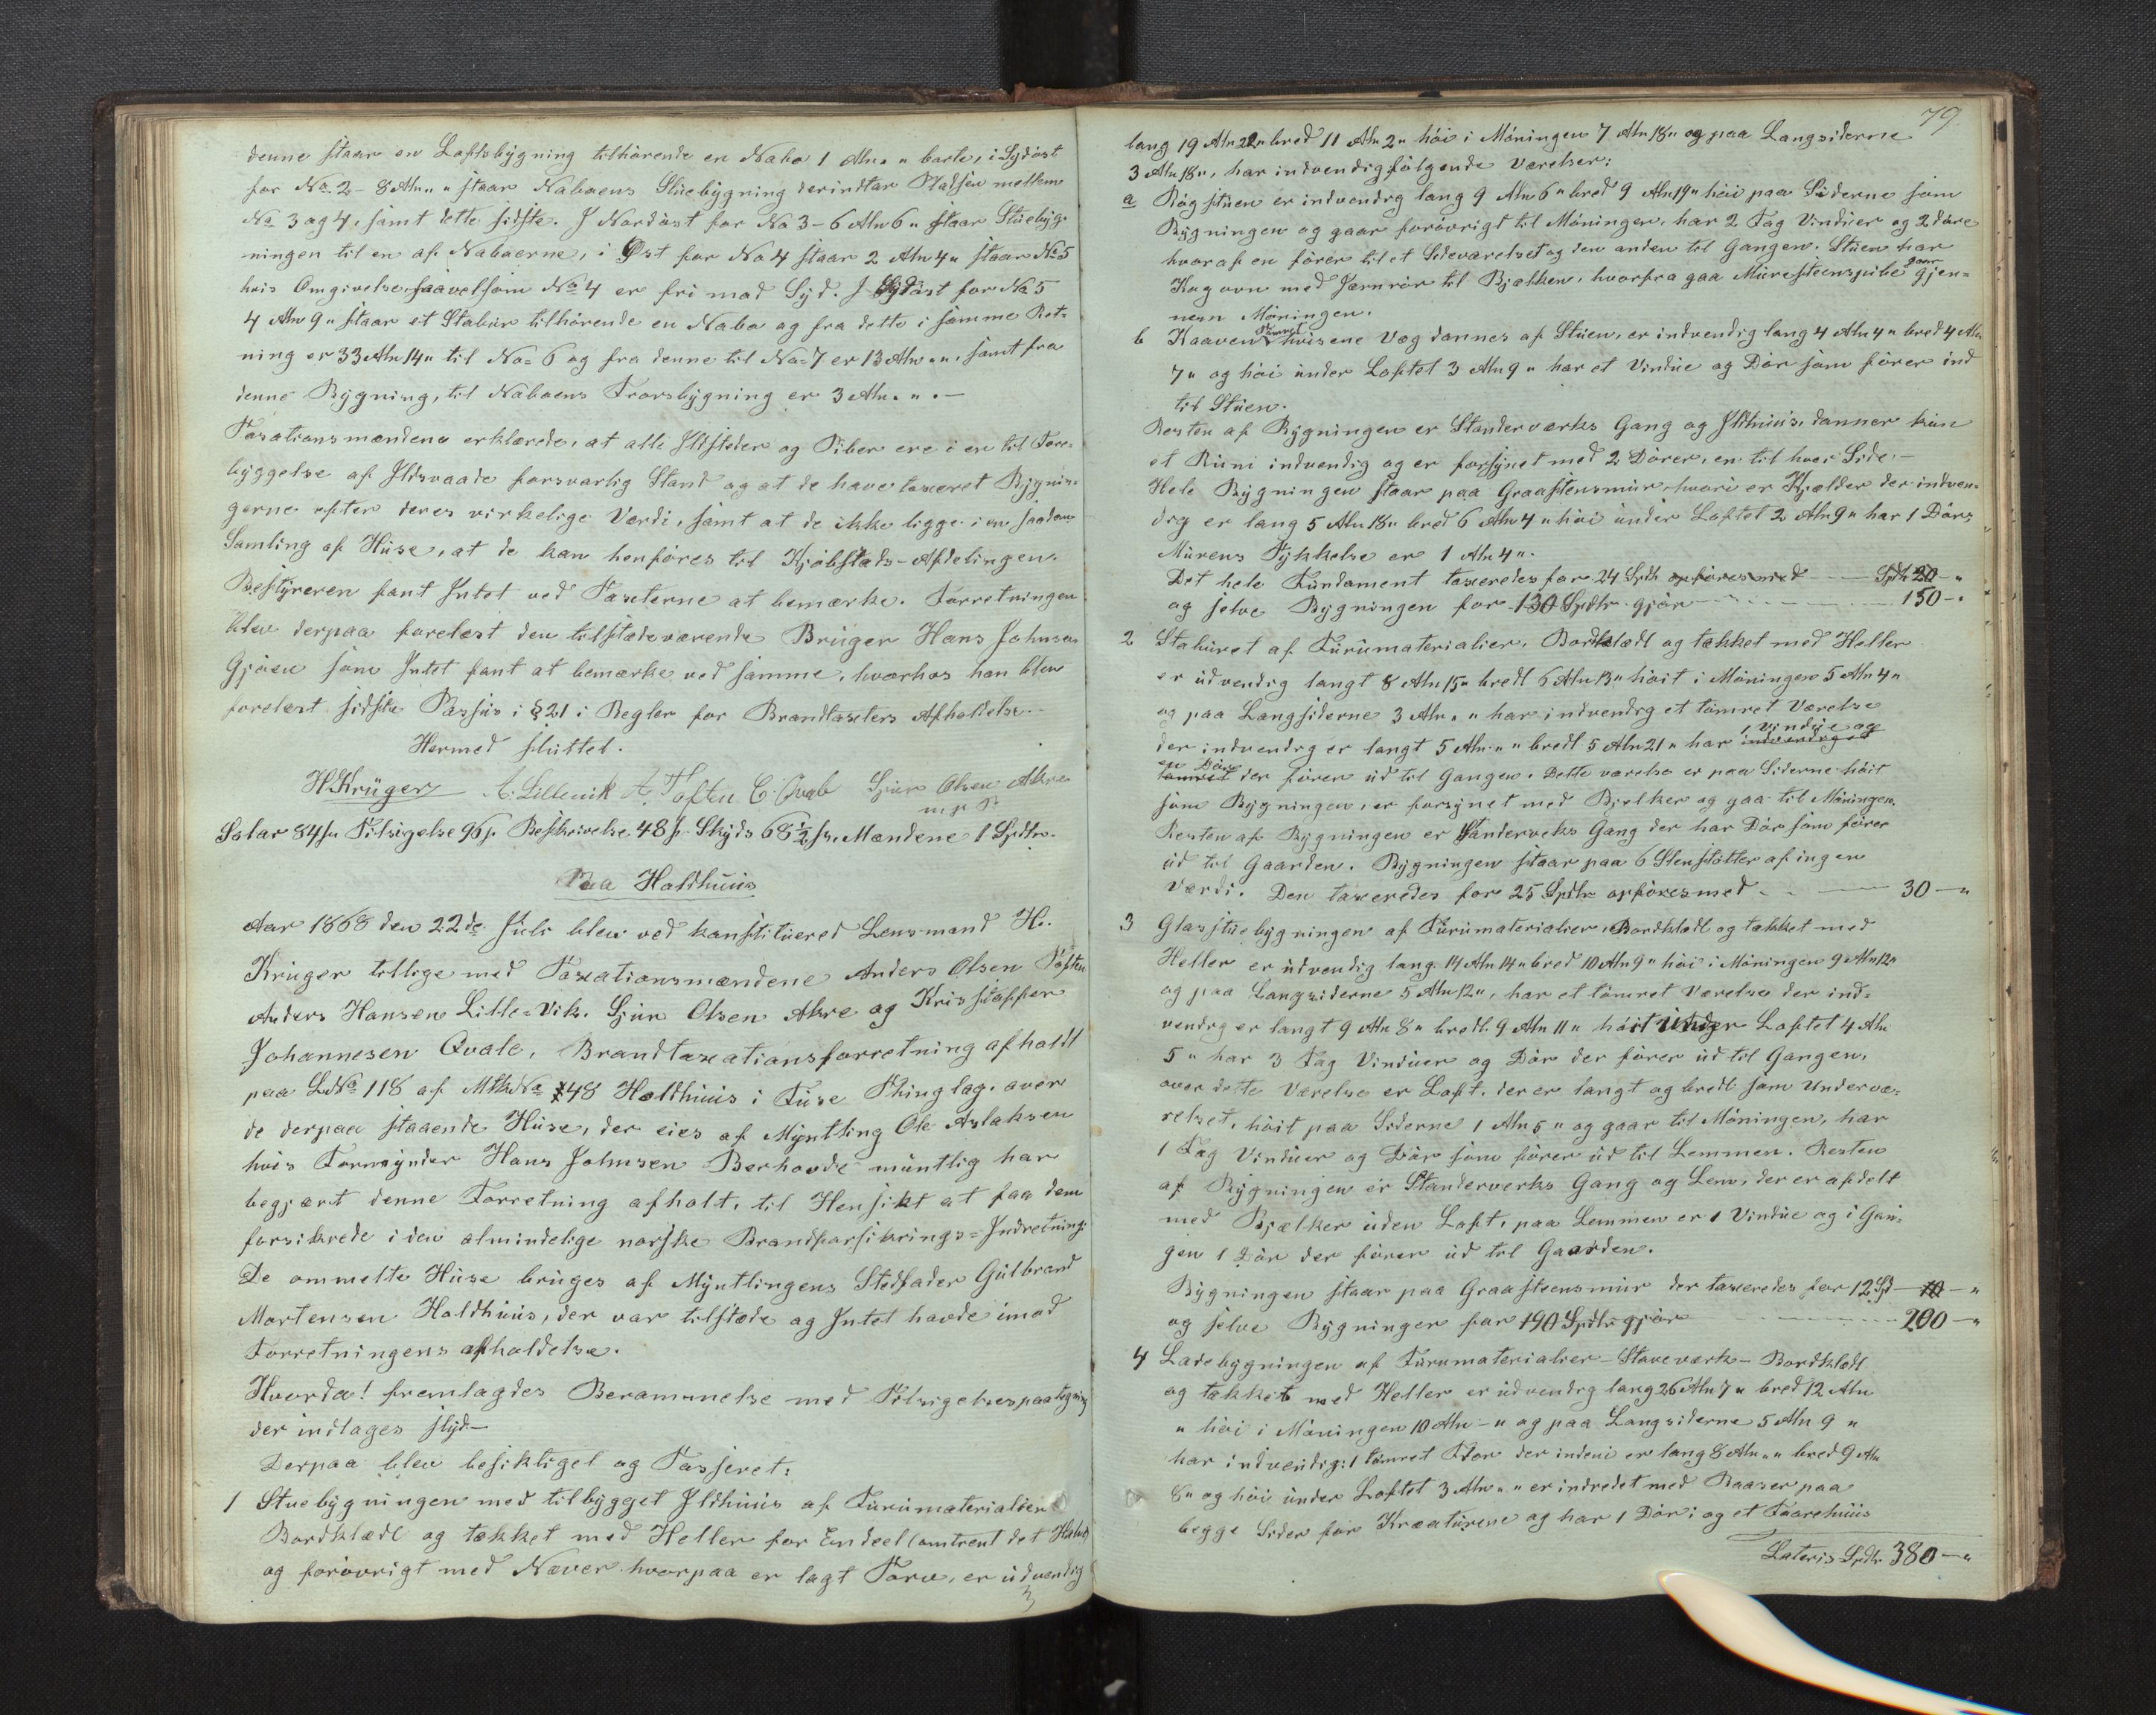 denne staar en Loftsbygning tilhørende en Nabo 1 Aln. " borte, i Sydøst
for No 2 - 8 Aln " " staar Naboens Stuebygning derindtar Pladsen mellem
No 3 og 4, samt dette sidste. I Nordøst for No 3 - 6 Aln 6 " staar Stuebyg-
ningen til en af Naboerne, i Øst for No 4 staar 2 Aln 4 " staar No 5
hvis Omgivelse saavelsom No 4 er fri mod Syd. I Sydøst for No 5
4 Aln 9 " staar et Stabur tilhørende en Nabo og fra dette i samme Ret-
ning er 33 Aln 14 " til No = 6 og fra denne til No = 7 er 13 Aln " ", samt fra
denne Bygning, til Naboens Bygning er 3 Aln. " . -
Taxationsmændene erklærede, at alle Ildsteder og Piber ere i en til Fore-
byggelse af Ildsvaade forsvarlig Stand og at de have taxeret Bygnin-
gerne efter deres virkelige Værdi, samt at de ikke ligge i en saadan
Samling af Huse, at de kan henføres til Kjøbstads-Afdelingen.
Bestyreren fant Intet ved Taxterne at bemærke. Forretningen
blev derpaa forelæst den tilstædeværende Bruger Hans Johnsen
Gjøen som Intet fant at bemærke ved samme, hvorhos han blev
forelæst sidste Passus i § 21 i Regler for Brandtaxters Afholdelse.
Hermed sluttet.
H. Krüger A. Lillevik A. Toften C. Qvale Sjur Olsen Akre
m. p. P.
Salar 84 s. Tilsigelse 96 s. Beskrivelse 48 s. Skyds 68 1/2 s. Mændene 1 Spdlr.
Paa Holdhuus
Aar 1868 den 22de Juli blev ved konstitueret Lensmand H.
Krüger tillige med Taxationsmændene Anders Olsen Toften
Anders Hansen Lille-Vik. Sjur Olsen Akre og Kristoffer
Johannesen Qvale, Brandtaxationsforretning afholdt
paa LNo 118 af MtkNo 48 Holdhuus i Fuse Thinglag. over
de derpaa staaende Huse, der eies af Myntling Ole Aslaksen
hvis Formynder Hans Johnsen Berhovde muntlig har
begjært denne Forretning afholt, til Hensikt at faa dem
forsikrede i den almindelige norske Brandforsikrings-Indretning.
De ommelte Huse bruges af Myntlingens Stedfader Gulbrand
Mortensen Holdhuus, der var tilstæde og Intet havde imod
Forretningens afholdelse.
Hvorda! fremlagdes Berammelse med Tilsigelsespaategning
der indtages slyd. -
Derpaa blev besiktiget og Tasseret:
1 Stuebygningen med tilbygget Ildhuus af Furumaterialier
Bordklædt og tækket med Heller for Endeel (omtrent det Halve)
og forøvrigt med Næver hvorpaa er lagt Torv, er udvendig
79
lang 19 Aln 22 " bred 11 Aln 2 " høi i Møningen 7 Aln 18 " og paa Langsiderne
3 Aln 18 ", har indvendig følgende Værelser:
a Røgstuen er indvendig lang 9 Aln 6 " bred 9 Aln 19 " høi paa Siderne som
Bygningen og gaar forøvrigt til Møningen, har 2 Fag Vinduer og 2 døre
hvoraf en fører til et Sideværelset og den anden til Gangen. Stuen har
Kagovn med Jærnrør til Bjælken, hvorfra gaa Murestenspibe gaar gjen-
nem Møningen.
b Kaaven tømret hvisene Væg dannes af Stuen, er indvendig lang 4 Aln 4 " bred 4 Aln
7 " og høi under Loftet 3 Aln 9 " har et Vindue og Dør som fører ind
til Stuen.
Resten af Bygningen er Standerværks Gang og Ildhuus, danner kun
et Rum indvendig og er forsynet med 2 Dører, en til hver Side. -
Hele Bygningen staar paa Graastensmur, hvori er Kjælder der indven-
dig er lang 5 Aln 18 " bred 6 Aln 4 " høi under Loftet 2 Aln 9 " har 1 Dør;
Murens Tykkelse er 1 Aln 4 ".
Det hele Fundament taxeredes for 24 Spdlr opføres med - - Spdlr 20 - "
og selve Bygningen for 130 Spdlr. gjør 150 - "
2 Staburet af Furumaterialier, Bordklædt og tækket med Heller
er udvendig langt 8 Aln 15 " bredt 6 Aln 13 " høit i Møningen 5 Aln 4 "
og paa Langsiderne 3 Aln " " har indvendig et tømret Værelse
der indvendig er langt 5 Aln " " bredt 5 Aln 21 " har indvendig et 1 Vindue og
tømret en Dør der fører ud til Gangen. Dette værelse er paa Siderne høit
som Bygningen, er forsynet med Bjelker og gaa til Møningen.
Resten af Bygningen er Standerveks Gang der har Dør som fører
ud til Gaarden. Bygningen staar paa 6 Stenstøtter af ingen
Værdi. Den taxeredes for 25 Spdlr opføres med - - 30 - "
3 Glasstuebygningen af Furumaterialier, Bordklædt og tækket med
Heller er udvendig lang 14 Aln 14 " bred 10 Aln 9 " høi i Møningen 9 Aln 12 "
og paa Langsiderne 5 Aln 12 ", har et tømret Værelse der ind-
vendig er langt 9 Aln 8 " bredt 9 Aln 11 " høit under Loftet 4 Aln
5 " har 3 Fag Vinduer og Dør der fører ud til Gangen,
over dette Værelse er Loft, der er langt og bredt som Underva-
relset, høit paa Siderne 1 Aln 5 " og gaar til Møningen, har
1 Fag Vinduer og Dør som fører ud til Lemmen. Resten
af Bygningen er Standerverks Gang og Lem, der er afdelt
med Bjælker uden Loft, paa Lemmen er 1 Vindue og i Gan-
gen 1 Dør der fører ud til Gaarden.
Bygningen staar paa Graasteensmur der taxeredes for 12 Sp - 10 - "
og selve Bygningen for 190 Spdlr. gjør 200 - "
4 Ladebygningen af Furumaterialier - Staveværk - Bordklædt
og tækket med Heller er udvendig lang 26 Aln 7 " bred 12 Aln
" høi i Møningen 10 Aln - " og paa Langsiderne 5 Aln 9 "
har indvendig: 1 tømret Flor der indeni er lang 8 Aln " " bred 9 Aln
8 " og høi under Loftet 3 Aln " " er indredet med Baaser paa
begge Sider for Kræaturene og har 1 Dør; og et Faarehuus
Lateris Spdlr. 380 - "